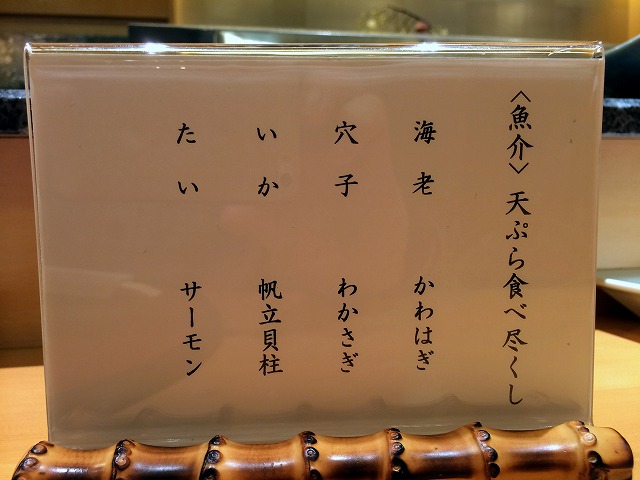 〈魚介〉天ぷら食べ尽くし
海老 かわはぎ
穴子 わかさぎ
いか 帆立貝柱
たい サーモン